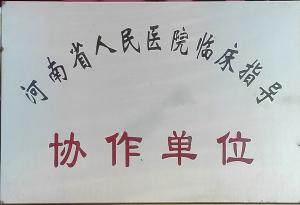 河南省人民医院临床指导
协作单位